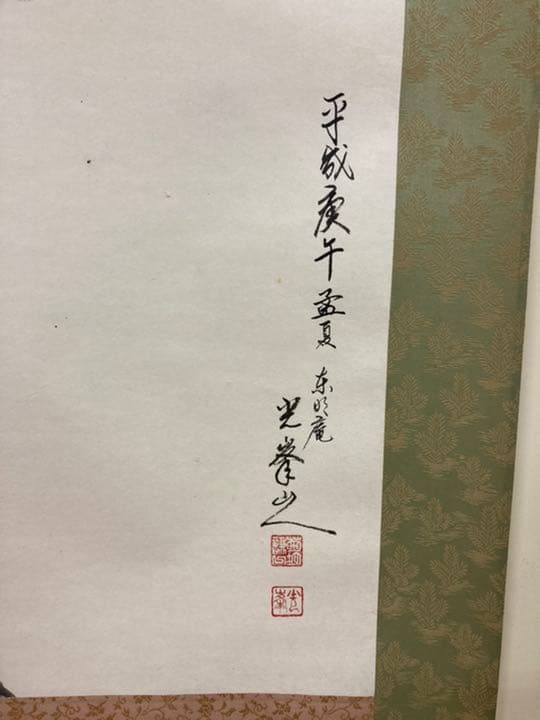 平成庚午孟夏
东明庵
光峯山人